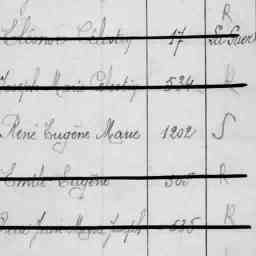 R
Célestin 17
Joseph Marie Célestin 534 R
René Eugène Marie 1202 S
Emile Eugène R
René Jean Marie Joseph 535 R